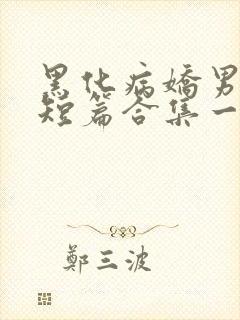 黑化病嬌男
短篇合集一
鄭三波